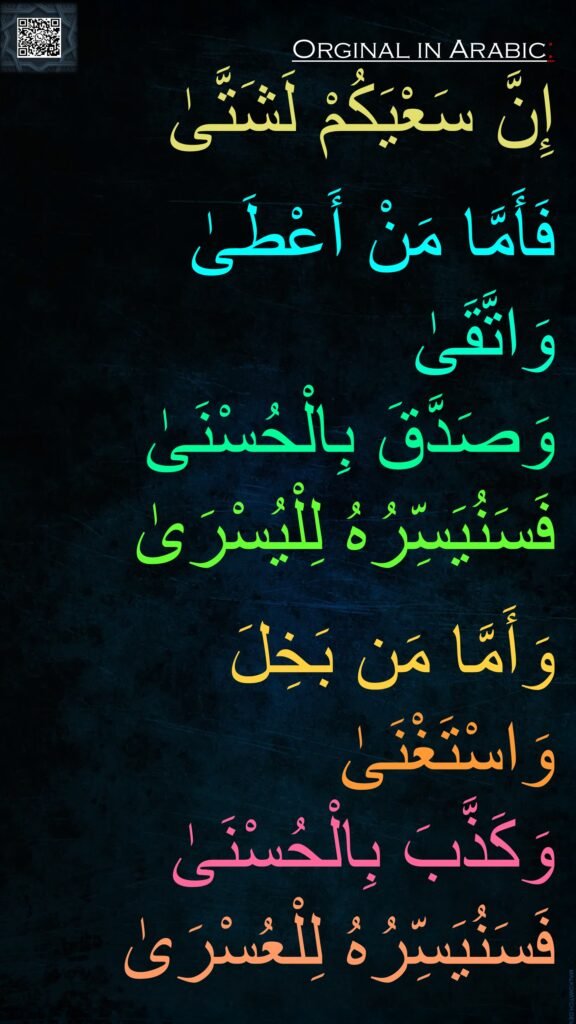 Orginal in Arabic:
إِنَّ سَعْيَكُمْ لَشَتَّىٰ
فَأَمَّا مَنْ أَعْطَىٰ
وَاتَّقَىٰ
وَصَدَّقَ بِالْحُسْنَىٰ
فَسَنُيَسِّرُهُ لِلْيُسْرَىٰ
وَأَمَّا مَن بَخِلَ
وَاسْتَغْنَىٰ
وَكَذَّبَ بِالْحُسْنَىٰ
فَسَنُيَسِّرُهُ لِلْعُسْرَىٰ